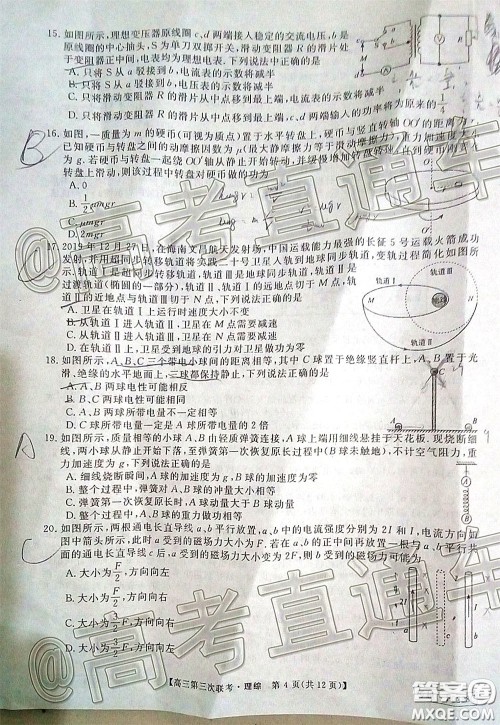 15. 如图所示，理想变压器原线圈 c、d 两端接入稳定的交流电压，b 是
原线圈的中心抽头，S 为单刀双掷开关，滑动变阻器 R 的滑片处
于变阻器正中间，电表均为理想电表。下列说法中正确的是
A. 只将 S 从 a 驳接到 b，电流表的示数将减半
B. 只将 S 从 a 驳接到 b，电压表的示数将减半
C. 只将滑动变阻器 R 的滑片从中点移到最上端，电流表的示数将减半
D. 只将滑动变阻器 R 的滑片从中点移到最上端，c、d 两端输入的功率将为原来的
B
16. 如图，一质量为 m 的硬币(可视为质点)置于水平转盘上，硬币与竖直转轴 OO′的距离为 r，
已知硬币与转盘之间的动摩擦因数为 μ(最大静摩擦力等于滑动摩擦力)，重力加速度
为 g。若硬币与转盘一起绕 OO′轴从静止开始转动，并缓慢增加转盘转速，直到硬币刚要从
转盘上滑动，则该过程中转盘对硬币做的功为
A. 0
B. ½μmgr
C. μmgr
D. 2mgr
17. 2019 年 12 月 27 日，在海南文昌航天发射场，中国运载能力最强的长征 5 号运载火箭成功
发射，并用超同步转移轨道将实践二十号卫星入轨到地球同步轨道，变轨过程简化如图所
示，轨道Ⅰ是超同步转移轨道，轨道Ⅲ是地球同步轨道，轨道Ⅱ是
过渡轨道(椭圆的一部分)，轨道Ⅱ、轨道Ⅰ的远地点切于 M 点，轨道
Ⅱ的近地点与轨道Ⅲ切于 N 点，下列说法正确的是
A. 卫星在轨道Ⅰ上运行时速度大小不变
B. 从轨道Ⅰ进入轨道Ⅱ，卫星在 M 点需要减速
C. 从轨道Ⅱ进入轨道Ⅲ，卫星在 N 点需要减速
D. 在轨道Ⅱ上，卫星受到地球的引力对卫星做功为零
轨道Ⅲ
轨道Ⅰ
M
地球
N
轨道Ⅱ
18. 如图所示，A、B、C 三个带电小球间的距离相等，其中 C 球置于绝缘竖直杆上，A、B 球置于光
滑、绝缘的水平地面上，三球都保持静止，下列说法正确的是
A. A、B 两球电性可能相反
B. A、B 两球电性可能相同
C. A、B 两球所带电量不一定相等
D. C 球所带电量一定是 A 球所带电量的 2 倍
A
19. 如图所示，质量相等的小球 A、B 由轻质弹簧连接，A 球上端用细线悬挂于天花板。现烧断细
线，两小球从静止开始下落，至弹簧第一次恢复原长过程中(B 球未触地)，不计空气阻力，重
力加速度为 g，下列说法正确的是
A. 细线烧断瞬间，A 球的加速度大小为 2g
B. 整个过程中，弹簧对 A、B 球的冲量相同
C. 弹簧第一次恢复原长时，A 球动量大于 B 球动量
D. 整个过程中，A、B 球的重力做功相等
C
20. 如图所示，两根通电长直导线 a、b 平行放置，a、b 中的电流强度分别为 2I 和 I，电流方向如
图中箭头所示，此时 a 受到的磁场力大小为 F。若在 a、b 的正中间再放置一根与 a、b 平行共
面的通电长直导线 c 后，a 受到的磁场力大小变为 2F，则此时 b 受到的磁场力可能为
A. 大小为 F/2，方向向左
B. 大小为 F/2，方向向右
C. 大小为 3F/2，方向向右
D. 大小为 3F/2，方向向左
【高三第三次联考·理综 第 4 页(共 12 页)】
@高考直通车
@高考直通车
答案圈
MXQE.COM